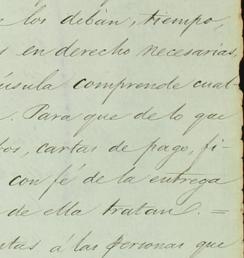 los deban, tiempo,
en derecho necesarias,
úsula comprende cual-
. Para que de lo que
os, cartas de pago, fi-
con fé de la entrega
de ella tratan. =
tas á las personas que